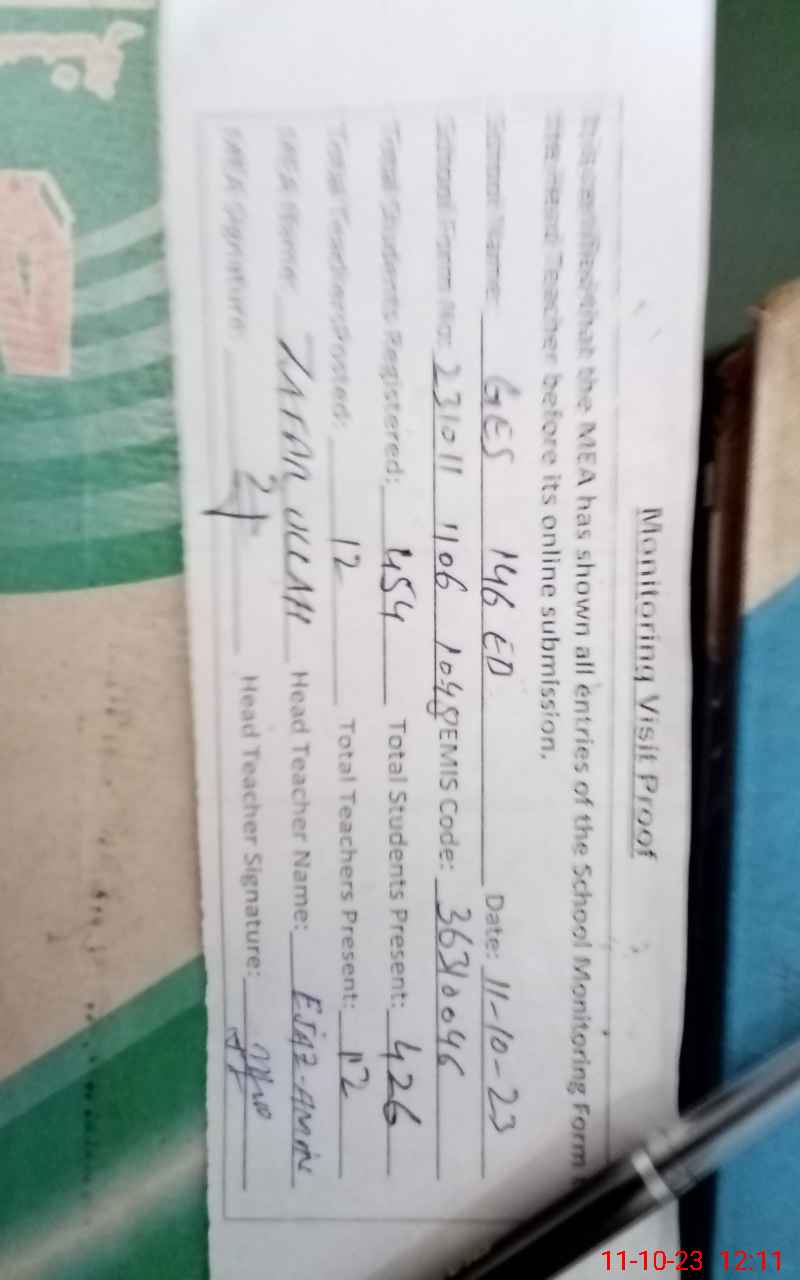 Monitoring Visit Proof
that the MEA has shown all entries of the School Monitoring Form
the Head Teacher before its online submission.
School Name: GES 146 EB Date: 11-10-23
School Form No: 231011 1106 1048 EMIS Code: 36310046
Total Students Registered: 454 Total Students Present: 426
Total Teacher Posted: 12 Total Teachers Present: 12
MEA Name: ZAFAR ULLAH Head Teacher Name: EJAZ-AMIN
MEA Signature: Head Teacher Signature:
11-10-23 12:11